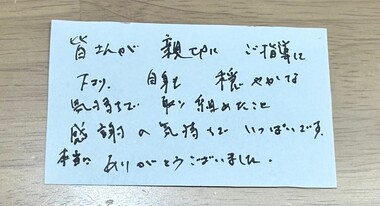 皆さんが 親切に ご指導に
下さり、 自身も 穏やかな
気持ちで 取り組めたこと
感謝の気持ちで いっぱいです。
本当に ありがとうございました。